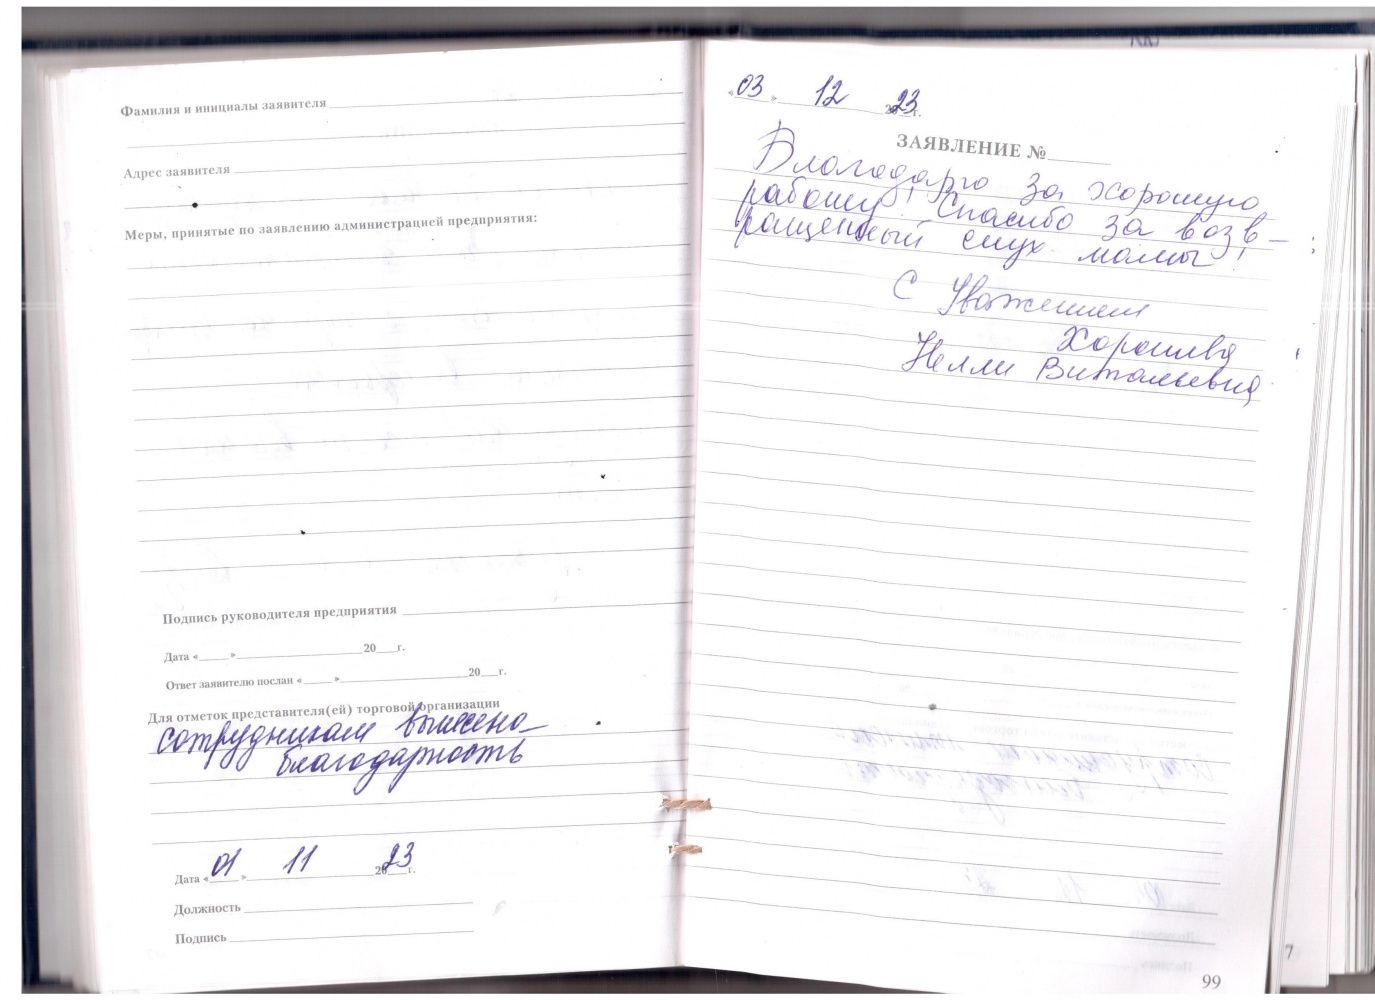 Фамилия и инициалы заявителя
Адрес заявителя
Меры, принятые по заявлению администрацией предприятия:
Подпись руководителя предприятия
Дата «____»____20___г.
Ответ заявителю послан «____»____20___г.
Для отметок представителя(ей) торговой организации
сотрудникам вынесена
благодарность
Дата «01» 11 2023г.
Должность
Подпись
«03» 12 2023г.
ЗАЯВЛЕНИЕ №
Благодарю за хорошую
работу! Спасибо за возв-
ращенный слух мамы!
С Уважением
Хорошева
Нелли Витальевна
99
7